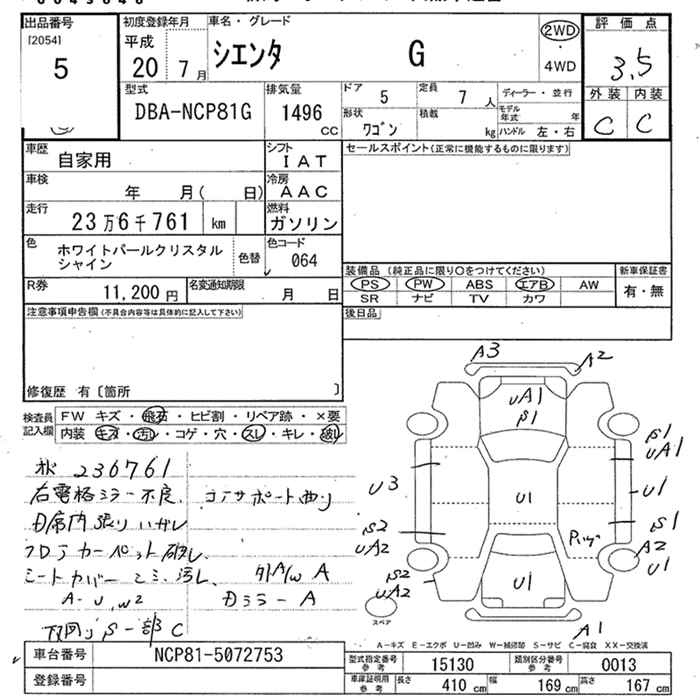 出品番号
[2054]
5
初度登録年月
平成
20 7月
車名・グレード
シエンタ G
2WD
・
4WD
評価点
3.5
外装 内装
C C
型式
DBA-NCP81G
排気量
1496
CC
ドア 5
定員 7 人
形状 ワゴン
積載 kg
ディーラー・並行
モデル年式 年
ハンドル 左・右
車歴 自家用
シフト IAT
車検 年 月( 日)
冷房 AAC
走行 23万6千761 km
燃料 ガソリン
色 ホワイトパールクリスタル
シャイン
色替
色コード
064
R券 11,200円
名変通知期限 月 日
セールスポイント(正常に機能するものに限ります)
装備品 (純正品に限り○をつけてください)
PS PW ABS エアB AW
SR ナビ TV カワ
新車保証書
有・無
後日品
注意事項申告欄(不具合内容等は具体的に記入して下さい)
修復歴 有〔箇所 〕
検査員
記入欄
FW キズ・飛石・ヒビ割・リペア跡・×要
内装 キズ・汚レ・コゲ・穴・スレ・キレ・破レ
236761
右電格ミラー不良 コアサポート曲り
フロアカーペット破レ
シートカバー 汚レ 外A/W A
A-U,W2
下回り S 一部C
A3 A2
UA1
S1
S1
UA1
U3
U1
U1
S2
UA2
S1
A2
U1
S2
UA2
U1
A1
スペア
A-キズ E-エクボ U-凹み W-補修跡 S-サビ C-腐食 XX-交換済
車台番号 NCP81-5072753
登録番号
型式指定番号
参考
15130
類別区分番号
参考
0013
車庫証明用
参考
長さ 410 cm 幅 169 cm 高さ 167 cm